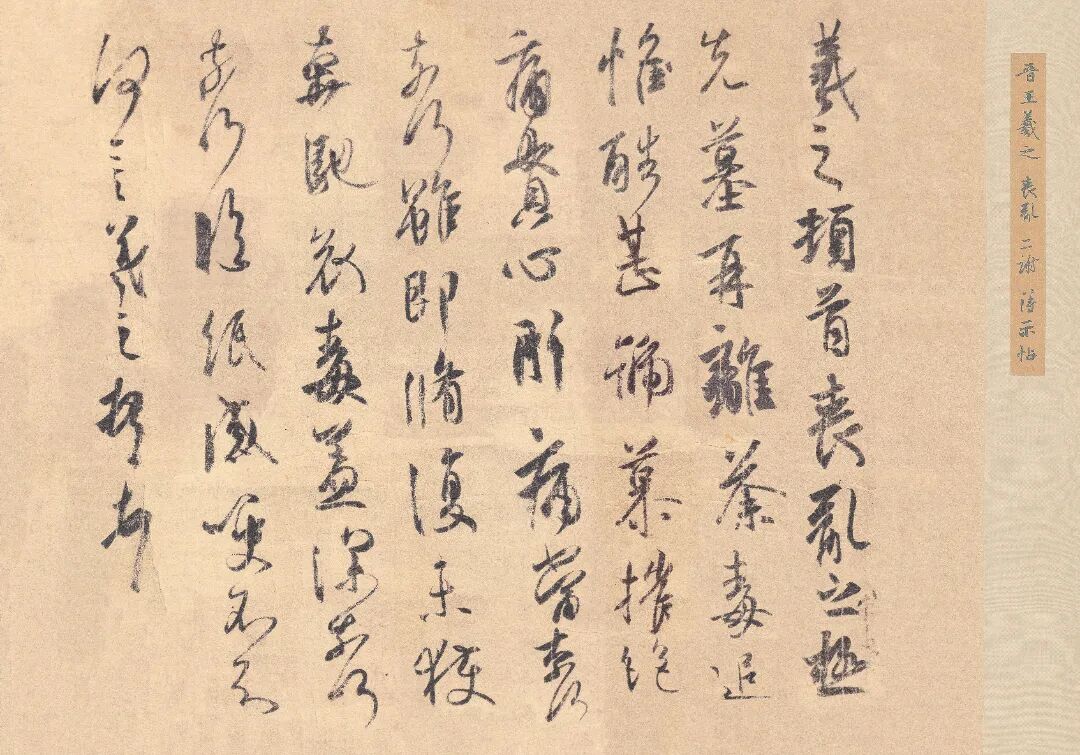 晋王羲之 喪亂 二謝 得示帖
羲之頓首喪亂之極
先墓再離荼毒追
惟酷甚號慕摧絕
痛貫心肝痛當奈何
奈何雖即脩復未獲
奔馳哀毒益深奈何
奈何臨紙感哽不知
何言羲之頓首頓首